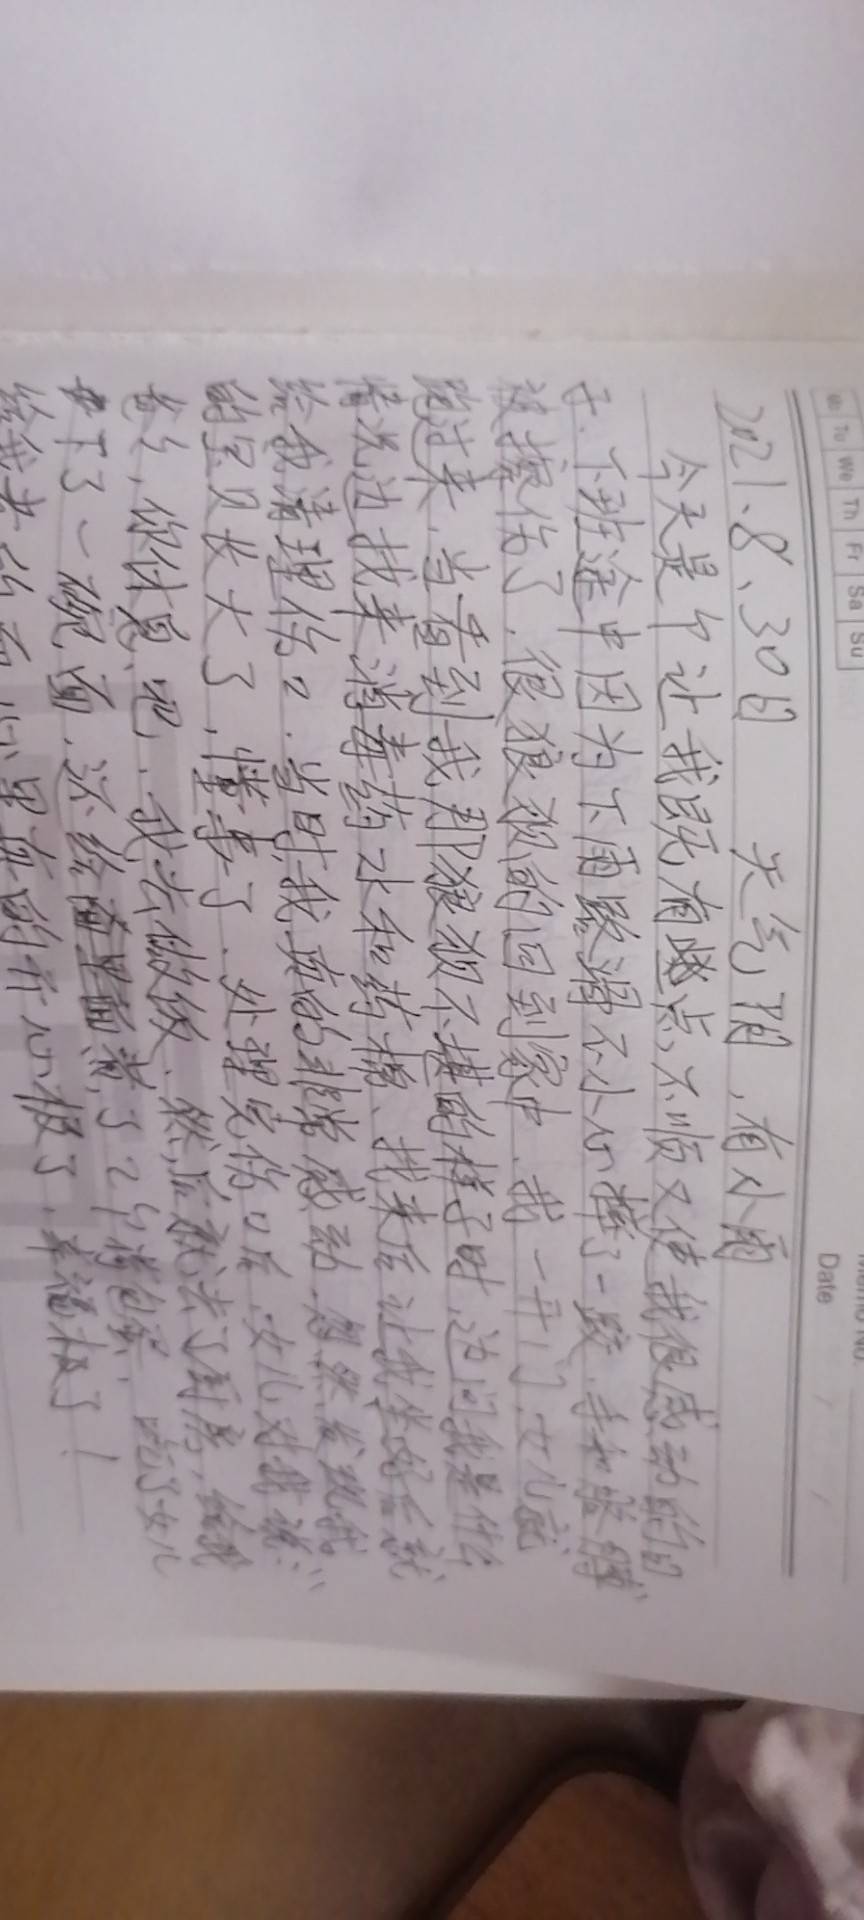 Mo Tu We Th Fr Sa Su
Memo No.
Date / /
2021.8、30日 天气阴，有小雨
今天是个让我既有点不顺又使我很感动的日
子、下班途中因为下雨路滑不小心摔了一跤、手和胳膊
被擦伤了、很狼狈的回到家中、我一开门、女儿就
跑过来、当看到我那狼狈不堪的样子时、边问我是什么
情况边找来消毒药水和药棉、找来后让我坐好后就
给我清理伤口、当时我真的非常感动、忽然发现我
的宝贝长大了、懂事了、处理完伤口后、女儿对我说：“
爸爸、你休息吧、我去做饭、然后就去了厨房、给我
下了一碗面、还给面里面煮了2个荷包蛋、吃了女儿
给我煮的面心里真的开心极了、幸福极了！